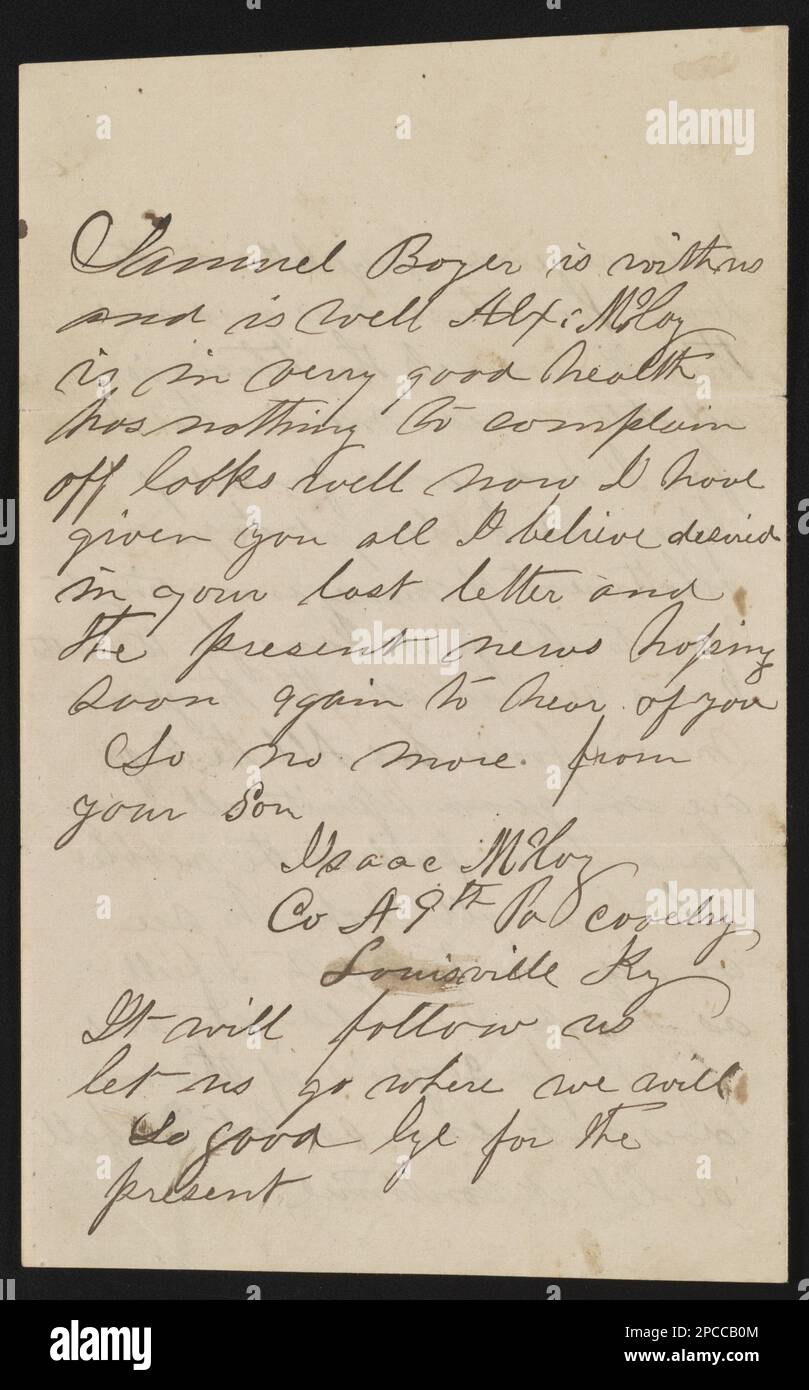 Samuel Boyer is with us
and is well Alx: McCoy
is in very good health
has nothing to complain
off looks well now I have
given you all I believe desired
in your last letter and
the present news hoping
soon again to hear of you
So no more from
your Son
Isaac McCoy
Co A 9th Pa cavelry
Louisville Ky
It will follow us
let us go where we will
So good bye for the
present
alamy
alamy
alamy
a
a
a
a
alamy
Image ID: 2PCCB0M
www.alamy.com